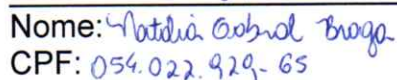 Nome: Natália Cabral Braga
CPF: 054.022.929-65